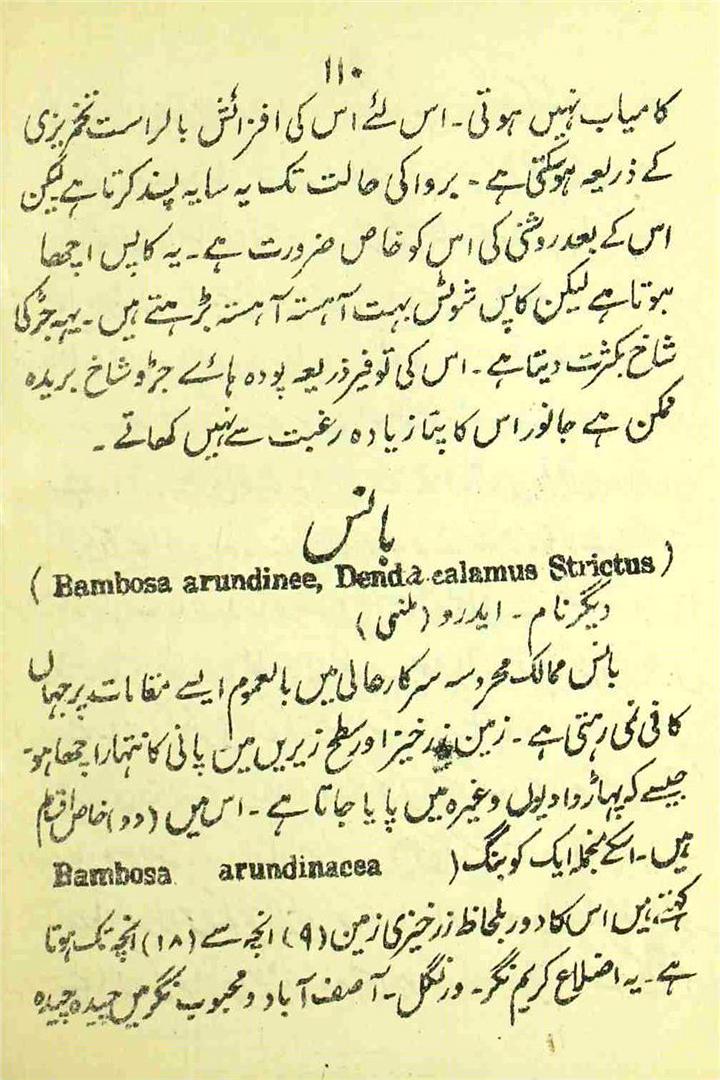 ۱۱۰
کامیاب نہیں ہوتی۔ اس لئے اس کی افزائش بالراست تخمریزی
کے ذریعہ ہوسکتی ہے۔ بروا کی حالت تک یہ سایہ پسند کرتا ہے لیکن
اس کے بعد روشنی کی اس کو خاص ضرورت ہے۔ یہ کاپس اچھا
ہوتا ہے لیکن کاپس شوٹس بہت آہستہ آہستہ بڑھتے ہیں۔ یہہ جڑ کی
شاخ بکثرت دیتا ہے۔ اس کی توفیر ذریعہ پودہ ہائے جڑ و شاخ بریدہ
ممکن ہے جانور اس کا پتا زیادہ رغبت سے نہیں کھاتے ۔
بانس
( Bambosa arundinee, Denda calamus Strictus )
دیگر نام ۔ ایدرو (تلنگی)
بانس ممالک محروسہ سرکار عالی میں بالعموم ایسے مقامات پر جہاں
کافی نمی رہتی ہے۔ زمین زرخیز اور سطح زیریں میں پانی کا نتھارا چھا ہو۔
جیسے کہ پہاڑ وادیوں وغیرہ میں پایا جاتا ہے۔ اس میں (دو) خاص اقسام
ہیں۔ اسکے منجملہ ایک کو بنگ ( Bambosa arundinacea
کہتے ہیں اس کا دور بلحاظ زرخیزی زمین (۹) انچہ سے (۱۸) انچہ تک ہوتا
ہے۔ یہ اضلاع کریم نگر۔ ورنگل۔ آصف آباد و محبوب نگر میں چیدہ چیدہ